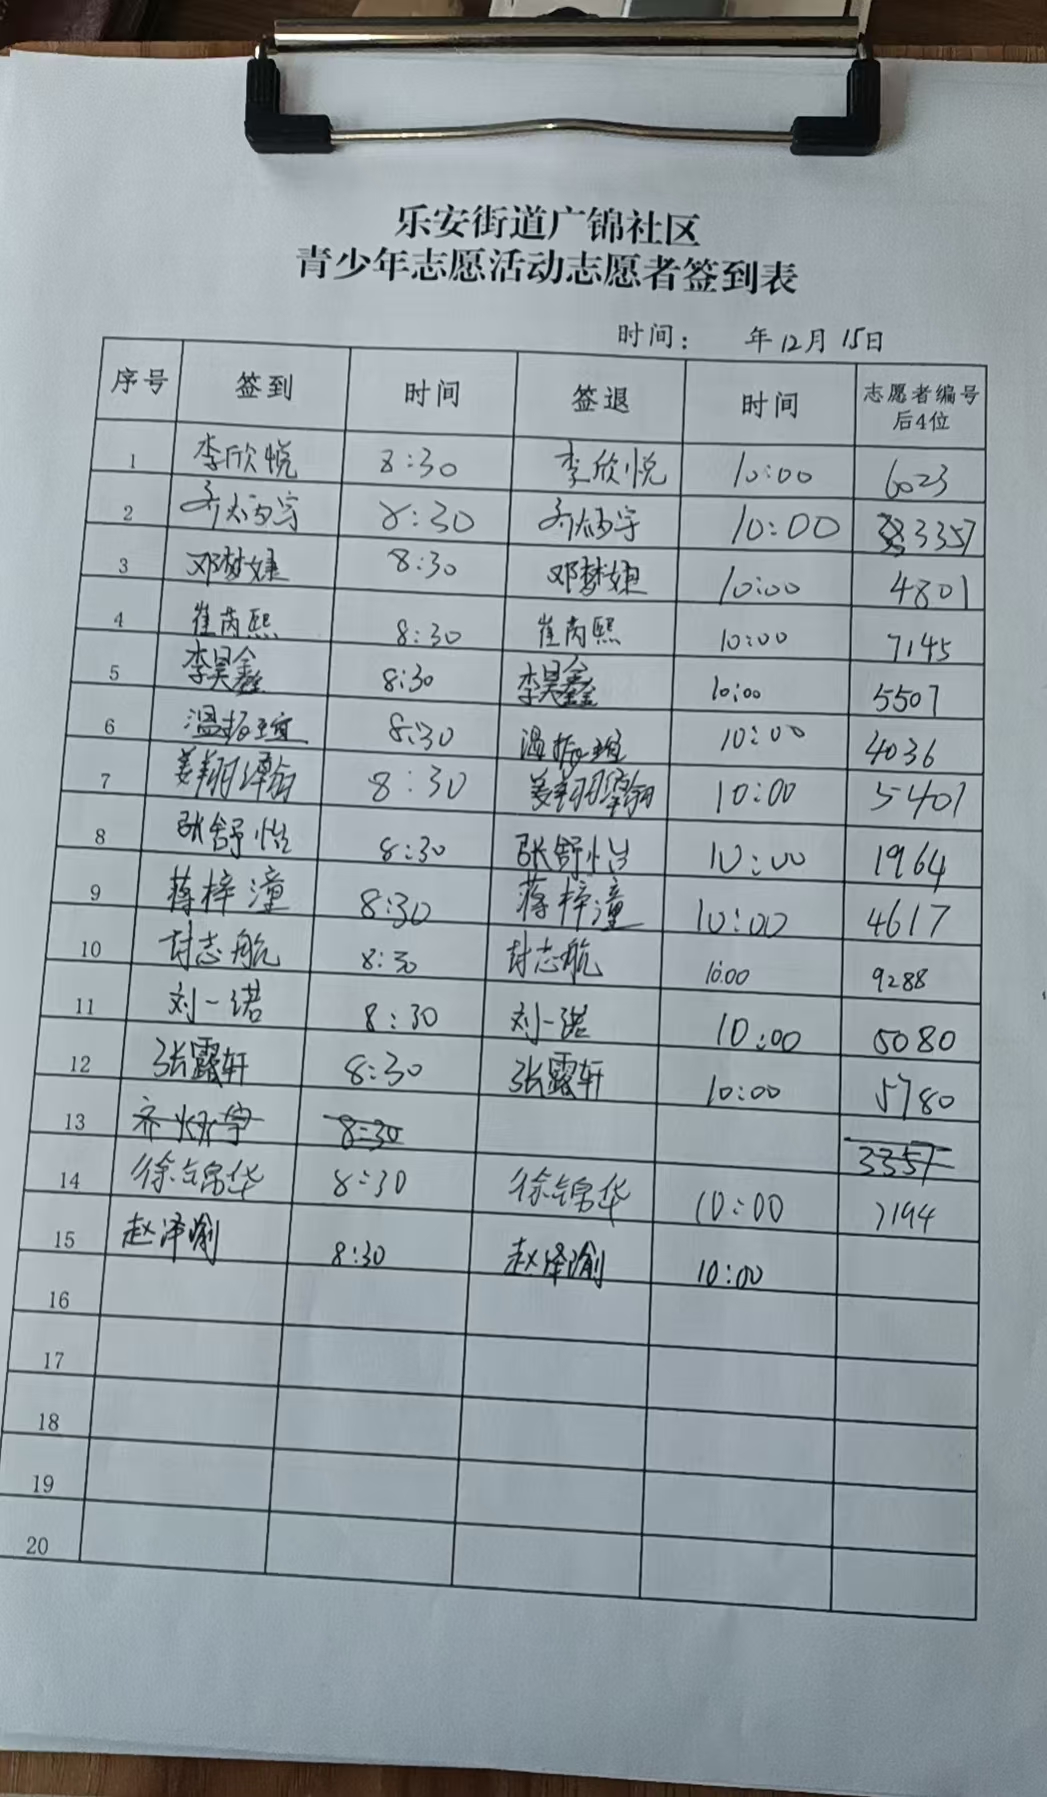 乐安街道广锦社区
青少年志愿活动志愿者签到表
时间： 年12月15日
序号 签到 时间 签退 时间 志愿者编号后4位
1 李欣悦 8:30 李欣悦 10:00 6023
2 8:30 10:00 3357
3 邓梦婕 8:30 邓梦婕 10:00 4801
4 崔芮熙 8:30 崔芮熙 10:00 7145
5 李昊鑫 8:30 李昊鑫 10:00 5507
6 温振瑄 8:30 温振瑄 10:00 4036
7 姜翔 8:30 姜翔 10:00 5401
8 张舒怡 8:30 张舒怡 10:00 1964
9 蒋梓潼 8:30 蒋梓潼 10:00 4617
10 封志航 8:30 封志航 10:00 9288
11 刘一诺 8:30 刘一诺 10:00 5080
12 张露轩 8:30 张露轩 10:00 5780
13 8:30 3357
14 徐锦华 8:30 徐锦华 10:00 7194
15 赵泽瑜 8:30 赵泽瑜 10:00
16
17
18
19
20